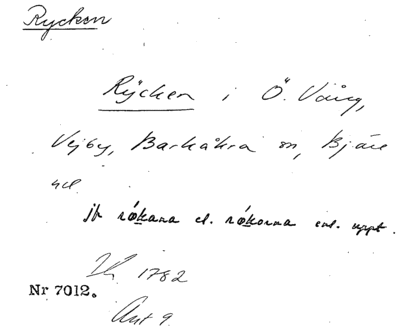 Ryckon
Rÿcken i Ö. Vång,
Vejby, Barkåkra sn, Bjäre
hd
jfr råkana el. råkorna enl. uppt.
1782
Nr 7012.
Ant 9